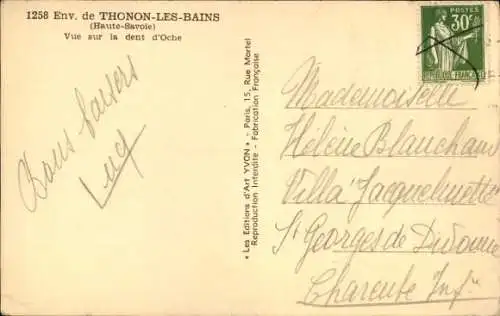 1258 Env. de THONON-LES-BAINS
(Haute-Savoie)
Vue sur la dent d'Oche
Bons baisers
Lucy
« Les Editions d'Art YVON » - Paris, 15, Rue Martel
Reproduction Interdite - Fabrication Française
POSTES
30c
REPUBLIQUE FRANÇAISE
Mademoiselle
Hélène Blanchard
Villa "Jacquelinette"
St Georges de Didonne
Charente Infre